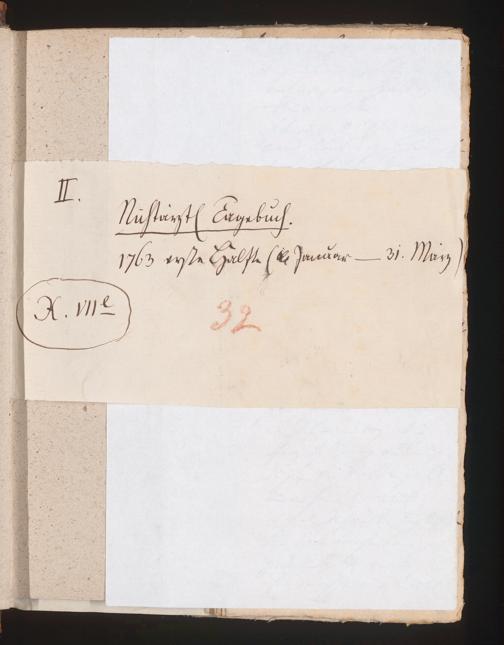 II.
Nichtärztl Tagebuch.
1763 erste Hälfte ( Januar — 31. März)
X. VIIe
32